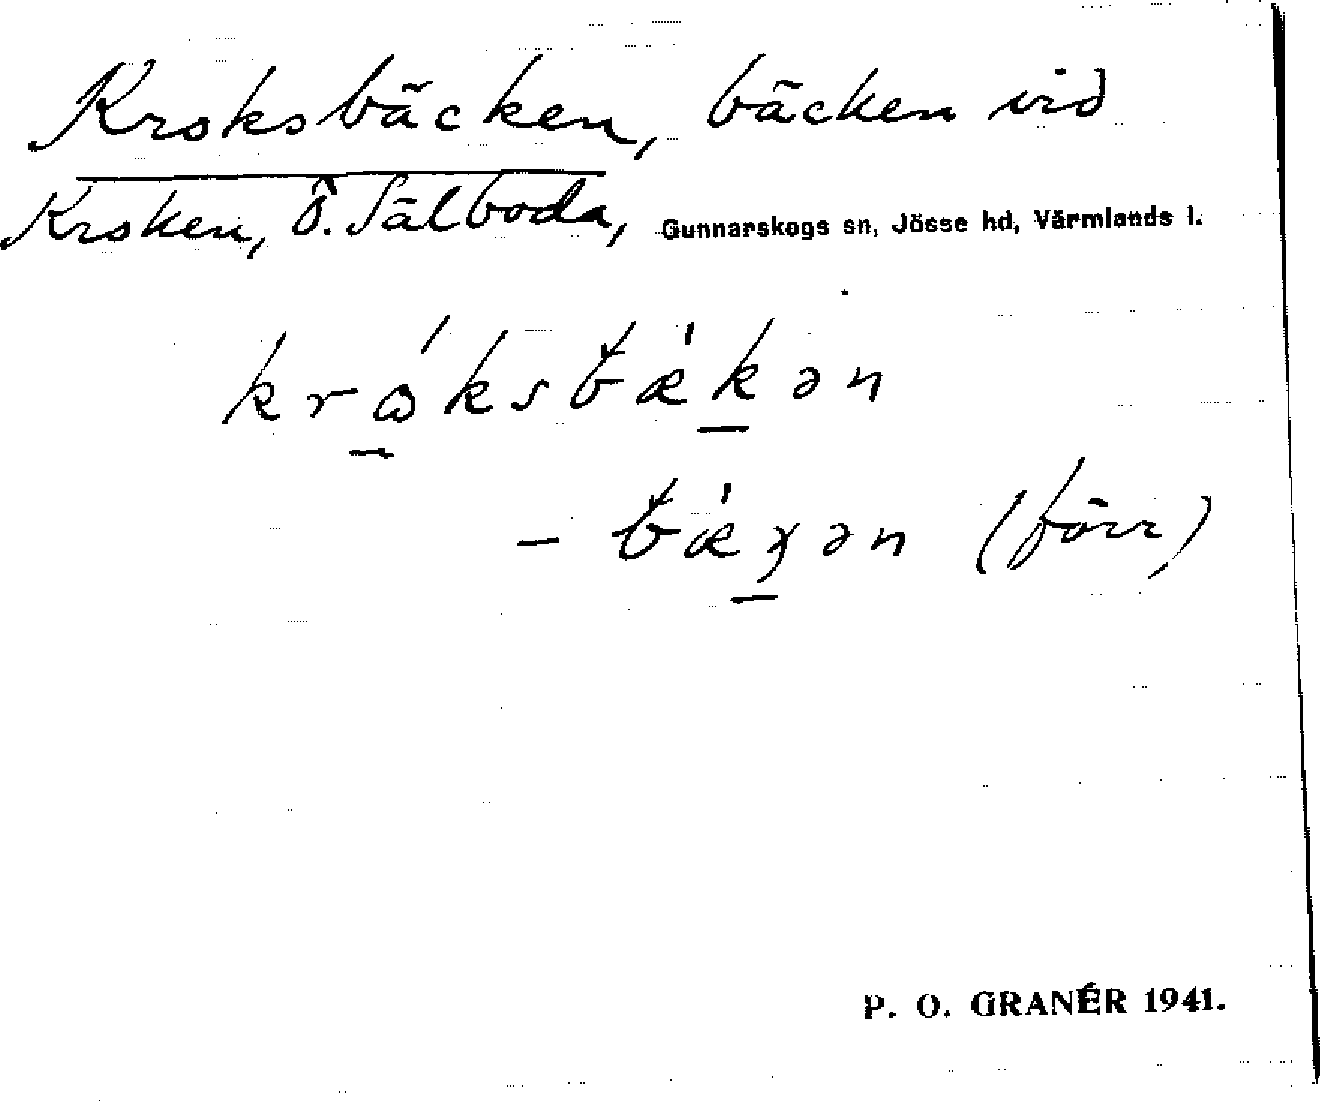 Kroksbäcken, bäcken vid
Kroken, Ö. Sälboda, Gunnarskogs sn, Jösse hd, Värmlands l.
króksbǽkən
– bǽχən (förr)
P. O. GRANÉR 1941.